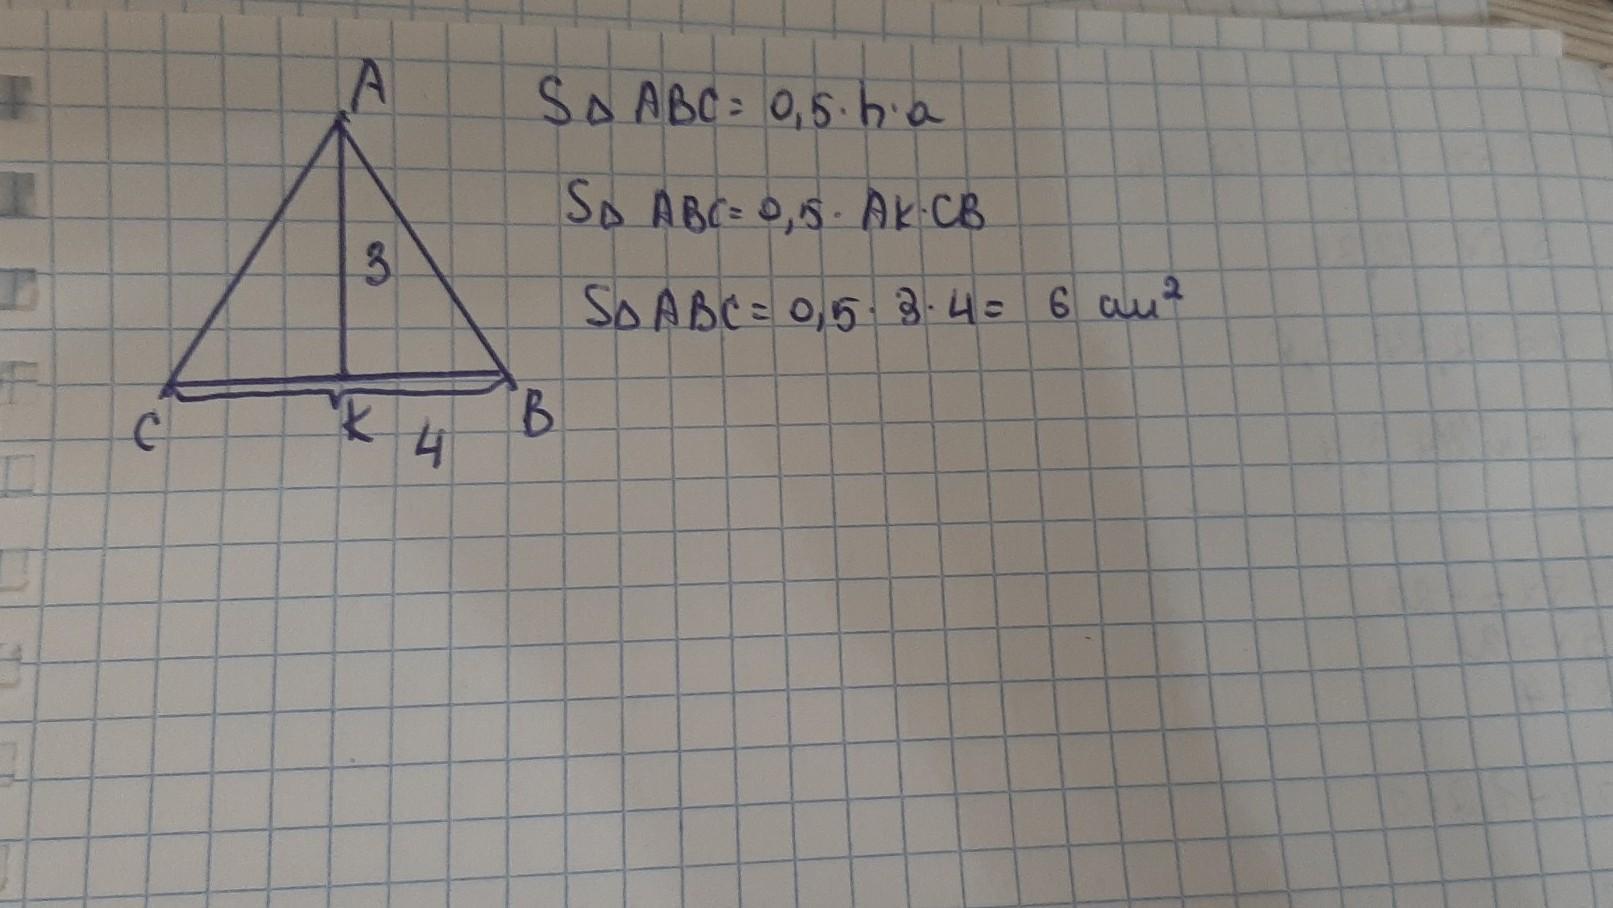 A
3
C
K
4
B
S△ ABC = 0,5 · h · a
S△ ABC = 0,5 · AK · CB
S△ ABC = 0,5 · 3 · 4 = 6 см²